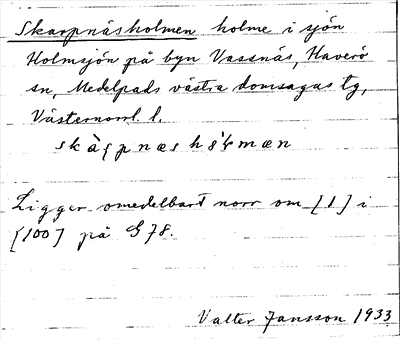 Skarpnäsholmen holme i sjön
Holmsjön på byn Vassnäs, Haverö
sn, Medelpads västra domsagas tg,
Västernorrl. l.
Ligger omedelbart norr om [1] i
[100] på G 78.
Valter Jansson 1933